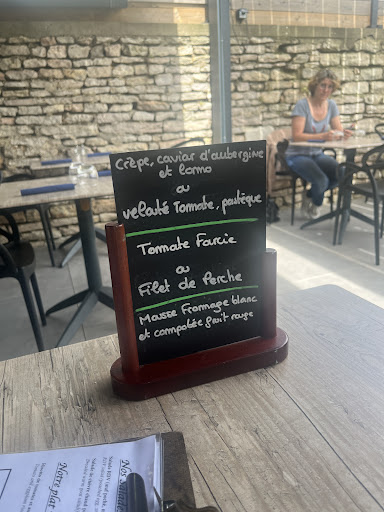 Crèpe, caviar d'aubergine
et lomo
ou
velouté Tomate, pastèque
Tomate Farcie
ou
Filet de Perche
Mousse Fromage blanc
et compotée fruit rouge
Notre plat
Nos